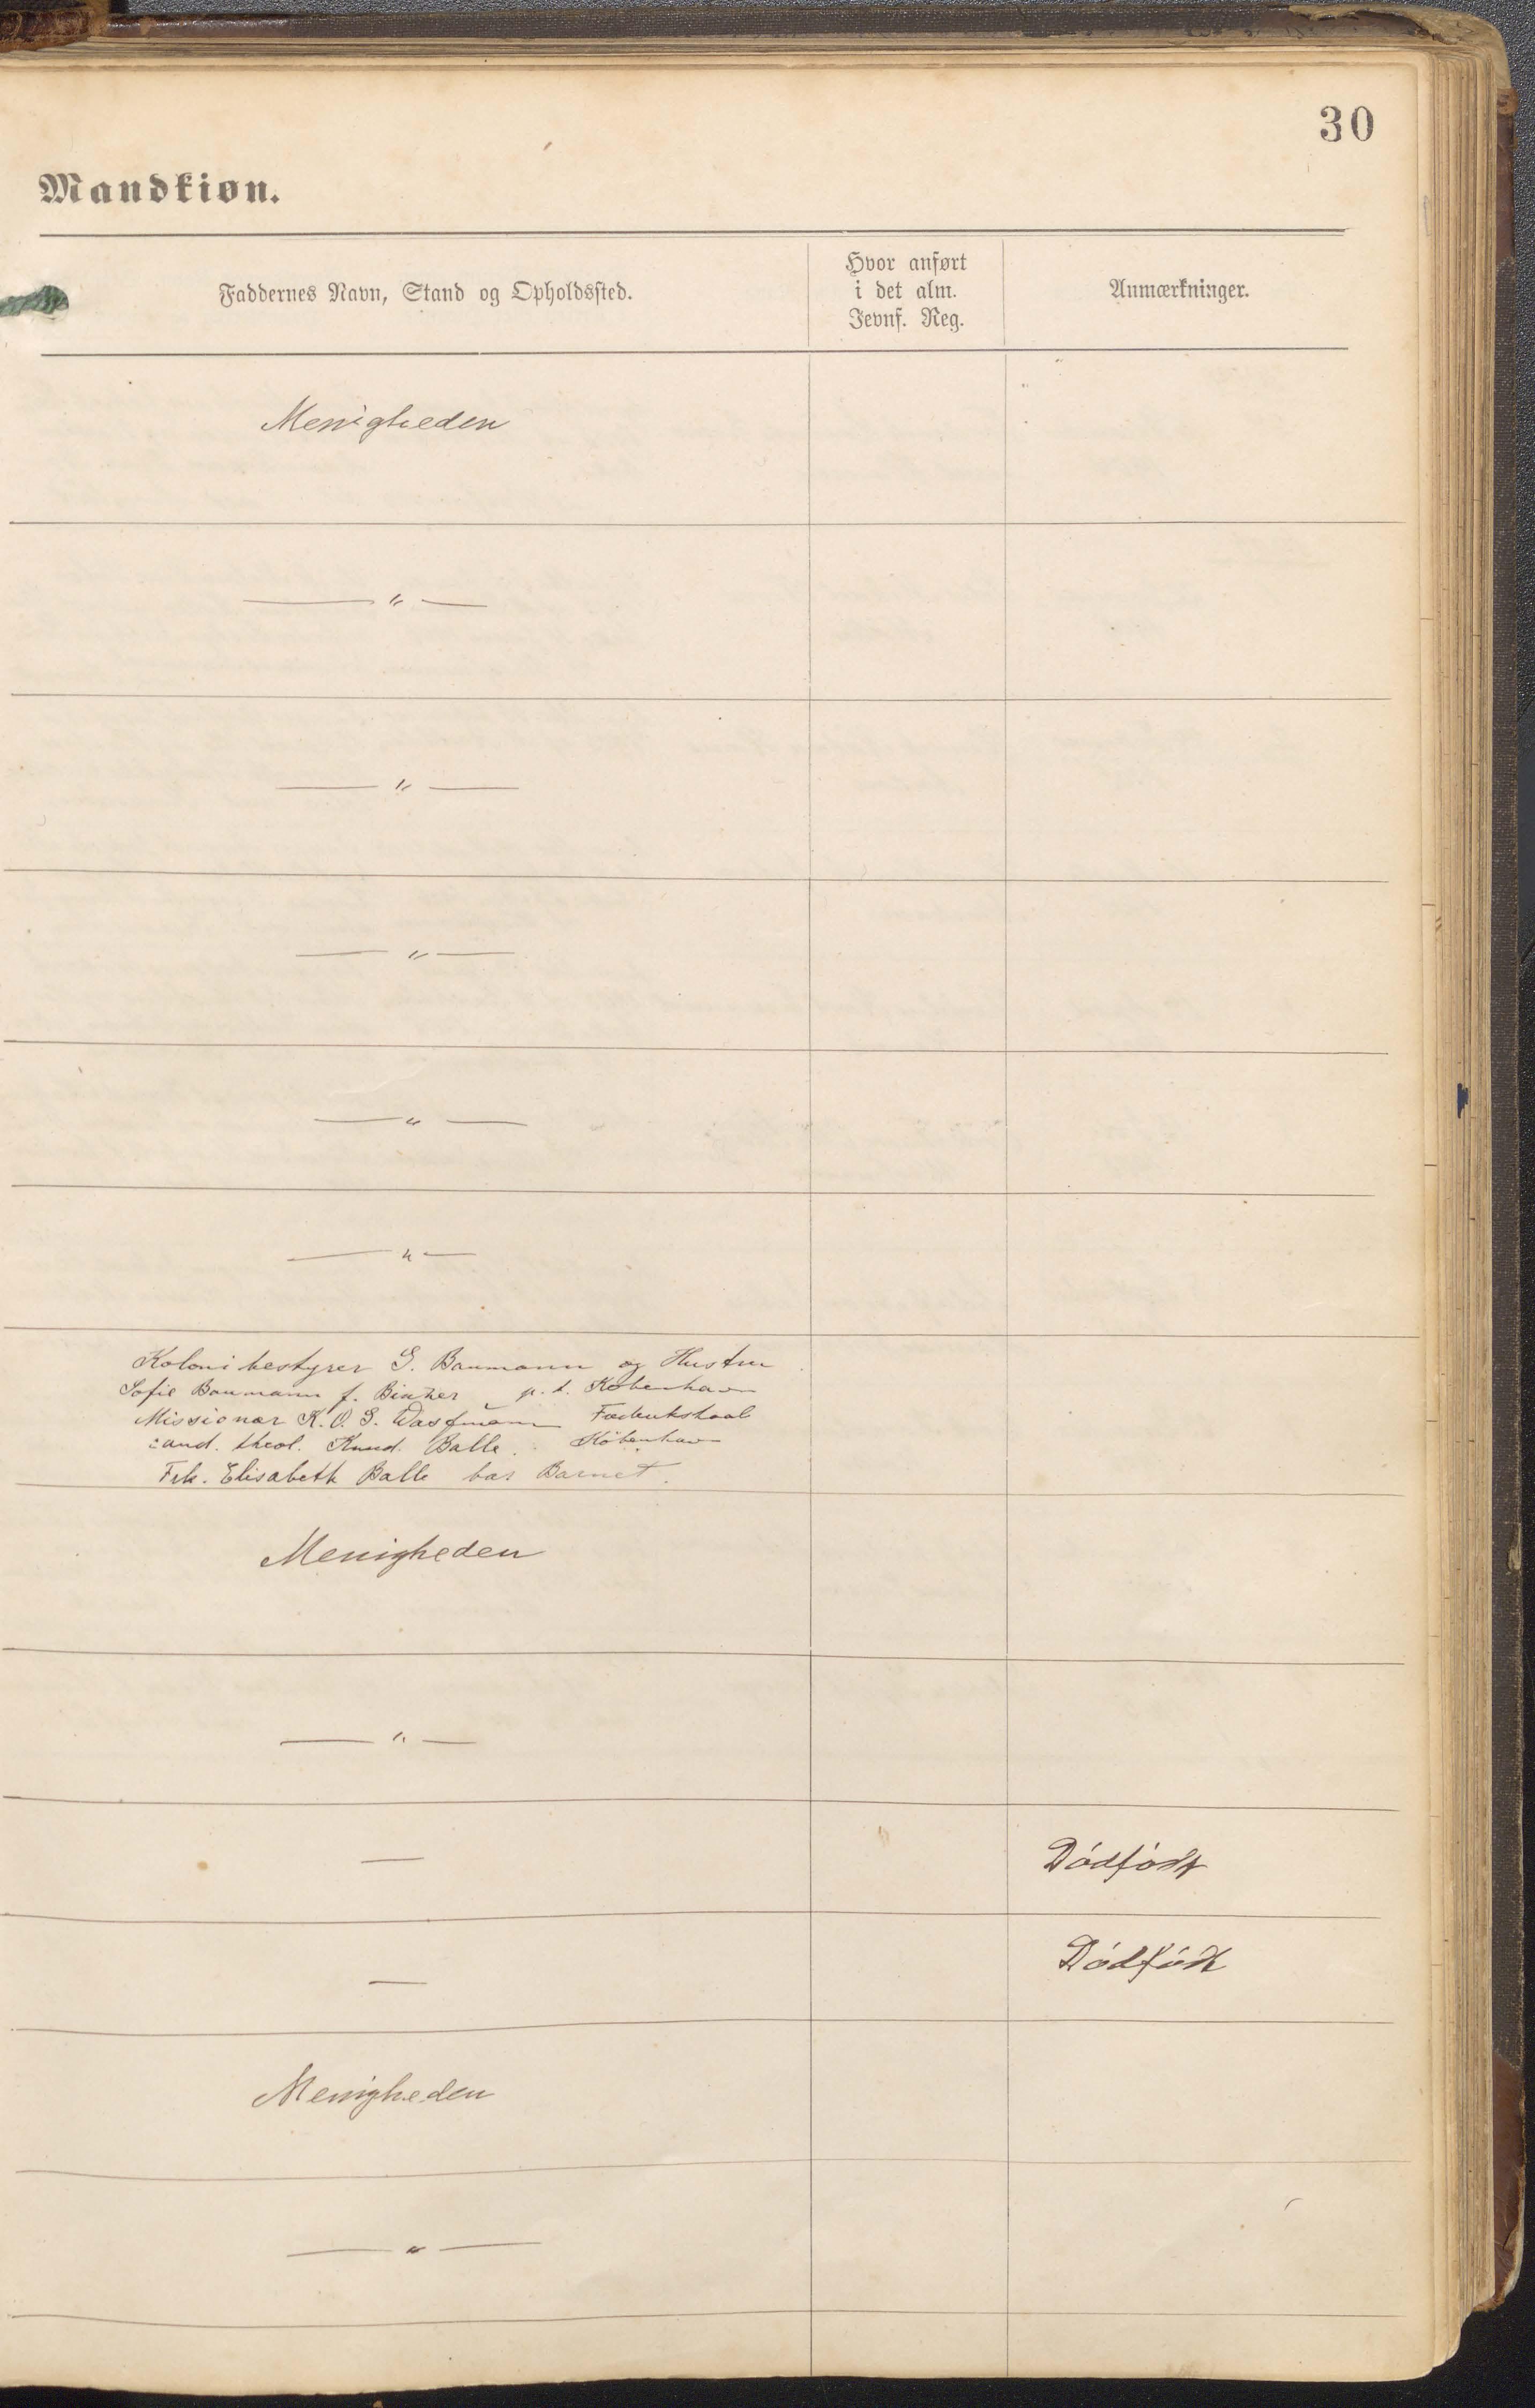 30
Mandkiøn.
Faddernes Navn, Stand og Opholdssted.
Hvor anført
i det alm.
Jevnf. Reg.
Anmærkninger.
Menigheden
— " —
— " —
— " —
— " —
— " —
Kolonibestyrer G. Baumann og Hustru
Sofie Baumann f. p. t. København
Missionær K. O. S.
cand. theol. Knud Balle. København
Frk. Elisabeth Balle bar Barnet.
Menigheden
— " —
— Dödfödt
— Dödfödt
Menigheden
— " —